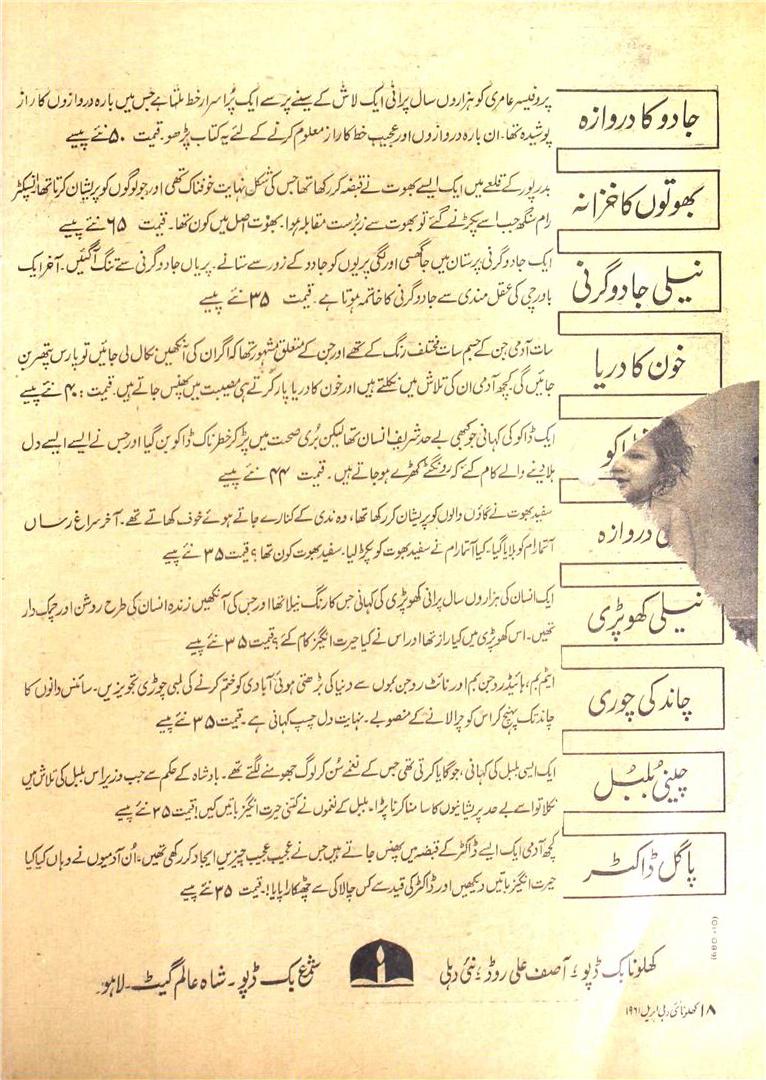 جادو کا دروازہ
پروفیسر عامری کو ہزاروں سال پرانی ایک لاش کے سینے پر سے ایک پُراسرار خط ملتا ہے جس میں بارہ دروازوں کا راز
پوشیدہ تھا۔ ان بارہ دروازوں اور عجیب خط کا راز معلوم کرنے کے لئے یہ کتاب پڑھو۔ قیمت ۵۰ نئے پیسے
بھوتوں کا خزانہ
بدر پور کے قلعے میں ایک ایسے بھوت نے قبضہ کر رکھا تھا جس کی شکل نہایت خوفناک تھی اور جو لوگوں کو پریشان کرتا تھا، انسپکٹر
رام سنگھ جب اسے پکڑنے گئے تو بھوت سے زبردست مقابلہ ہوا۔ بھوت اصل میں کون تھا۔ قیمت ۶۵ نئے پیسے
نیلی جادوگرنی
ایک جادوگرنی پرستان میں جا گھسی اور لگی پریوں کو جادو کے زور سے ستانے۔ پریاں جادوگرنی سے تنگ آگئیں۔ آخر ایک
باورچی کی عقل مندی سے جادوگرنی کا خاتمہ ہوتا ہے۔ قیمت ۳۵ نئے پیسے
خون کا دریا
سات آدمی جن کے جسم سات مختلف رنگ کے تھے اور جن کے متعلق مشہور تھا کہ اگر ان کی آنکھیں نکال لی جائیں تو پارس پتھر بن
جائیں گی کچھ آدمی ان کی تلاش میں نکلتے ہیں اور خون کا دریا پار کرتے ہی مصیبت میں پھنس جاتے ہیں۔ قیمت: ۴۰ نئے پیسے
ڈاکو
ایک ڈاکو کی کہانی جو کبھی بے حد شریف انسان تھا لیکن بُری صحبت میں پڑ کر خطرناک ڈاکو بن گیا اور جس نے ایسے ایسے دل
ہلا دینے والے کام کئے کہ رونگٹے کھڑے ہو جاتے ہیں۔ قیمت ۴۴ نئے پیسے
دروازہ
سفید بھوت نے گاؤں والوں کو پریشان کر رکھا تھا، وہ ندی کے کنارے جاتے ہوئے خوف کھاتے تھے۔ آخر سراغ رساں
آتما رام کو بلایا گیا۔ کیا آتما رام نے سفید بھوت کو پکڑ لیا۔ سفید بھوت کون تھا؟ قیمت ۳۵ نئے پیسے
نیلی کھوپڑی
ایک انسان کی ہزاروں سال پرانی کھوپڑی کی کہانی جس کا رنگ نیلا تھا اور جس کی آنکھیں زندہ انسان کی طرح روشن اور چمک دار
تھیں۔ اس کھوپڑی میں کیا راز تھا اور اس نے کیا حیرت انگیز کام کئے؟ قیمت ۳۵ نئے پیسے
چاند کی چوری
ایٹم بم، ہائیڈروجن بم اور نائٹروجن بموں سے دنیا کی بڑھتی ہوئی آبادی کو ختم کرنے کی لمبی چوڑی تجویزیں۔ سائنس دانوں کا
چاند تک پہنچ کر اس کو چرا لانے کے منصوبے۔ نہایت دل چسپ کہانی ہے۔ قیمت ۳۵ نئے پیسے
چینی بُلبُل
ایک ایسی بلبل کی کہانی، جو گایا کرتی تھی جس کے نغمے سُن کر لوگ جھومنے لگتے تھے۔ بادشاہ کے حکم سے جب وزیر اس بلبل کی تلاش میں
نکلا تو اسے بے حد پریشانیوں کا سامنا کرنا پڑا۔ بلبل کے نغموں نے کتنی حیرت انگیز باتیں کیں! قیمت ۳۵ نئے پیسے
پاگل ڈاکٹر
کچھ آدمی ایک ایسے ڈاکٹر کے قبضہ میں پھنس جاتے ہیں جس نے عجیب عجیب چیزیں ایجاد کر رکھی تھیں۔ اُن آدمیوں نے وہاں کیا کیا
حیرت انگیز باتیں دیکھیں اور ڈاکٹر کی قید سے کس چالاکی سے چھٹکارا پایا!۔ قیمت ۳۵ نئے پیسے
کھلونا بک ڈپو، آصف علی روڈ، نئی دہلی
شمع بک ڈپو۔ شاہ عالم گیٹ۔ لاہور
۱۸ کھلونا نئی دہلی اپریل ۱۹۶۱